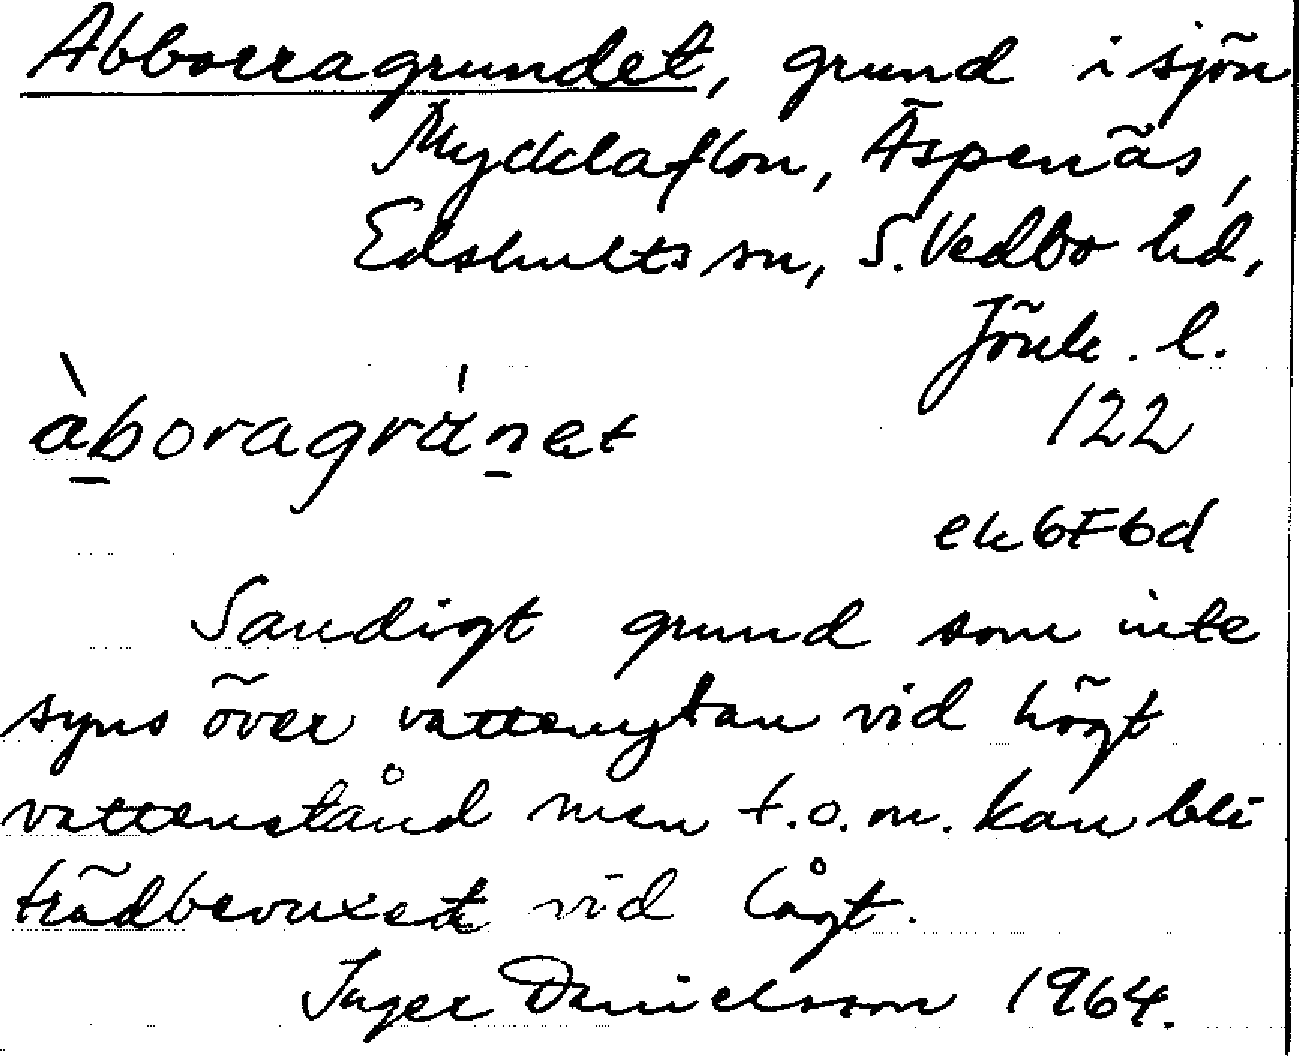 Abborragrundet, grund i sjön
Mycklaflon, Äspenäs,
Edshults sn, S. Vedbo hd,
Jönk. l.
àboragránet
122
ek6F6d
Sandigt grund som inte
syns över vattenytan vid högt
vattenstånd men t.o.m. kan bli
trädbevuxet vid lågt.
Inger Danielsson 1964.